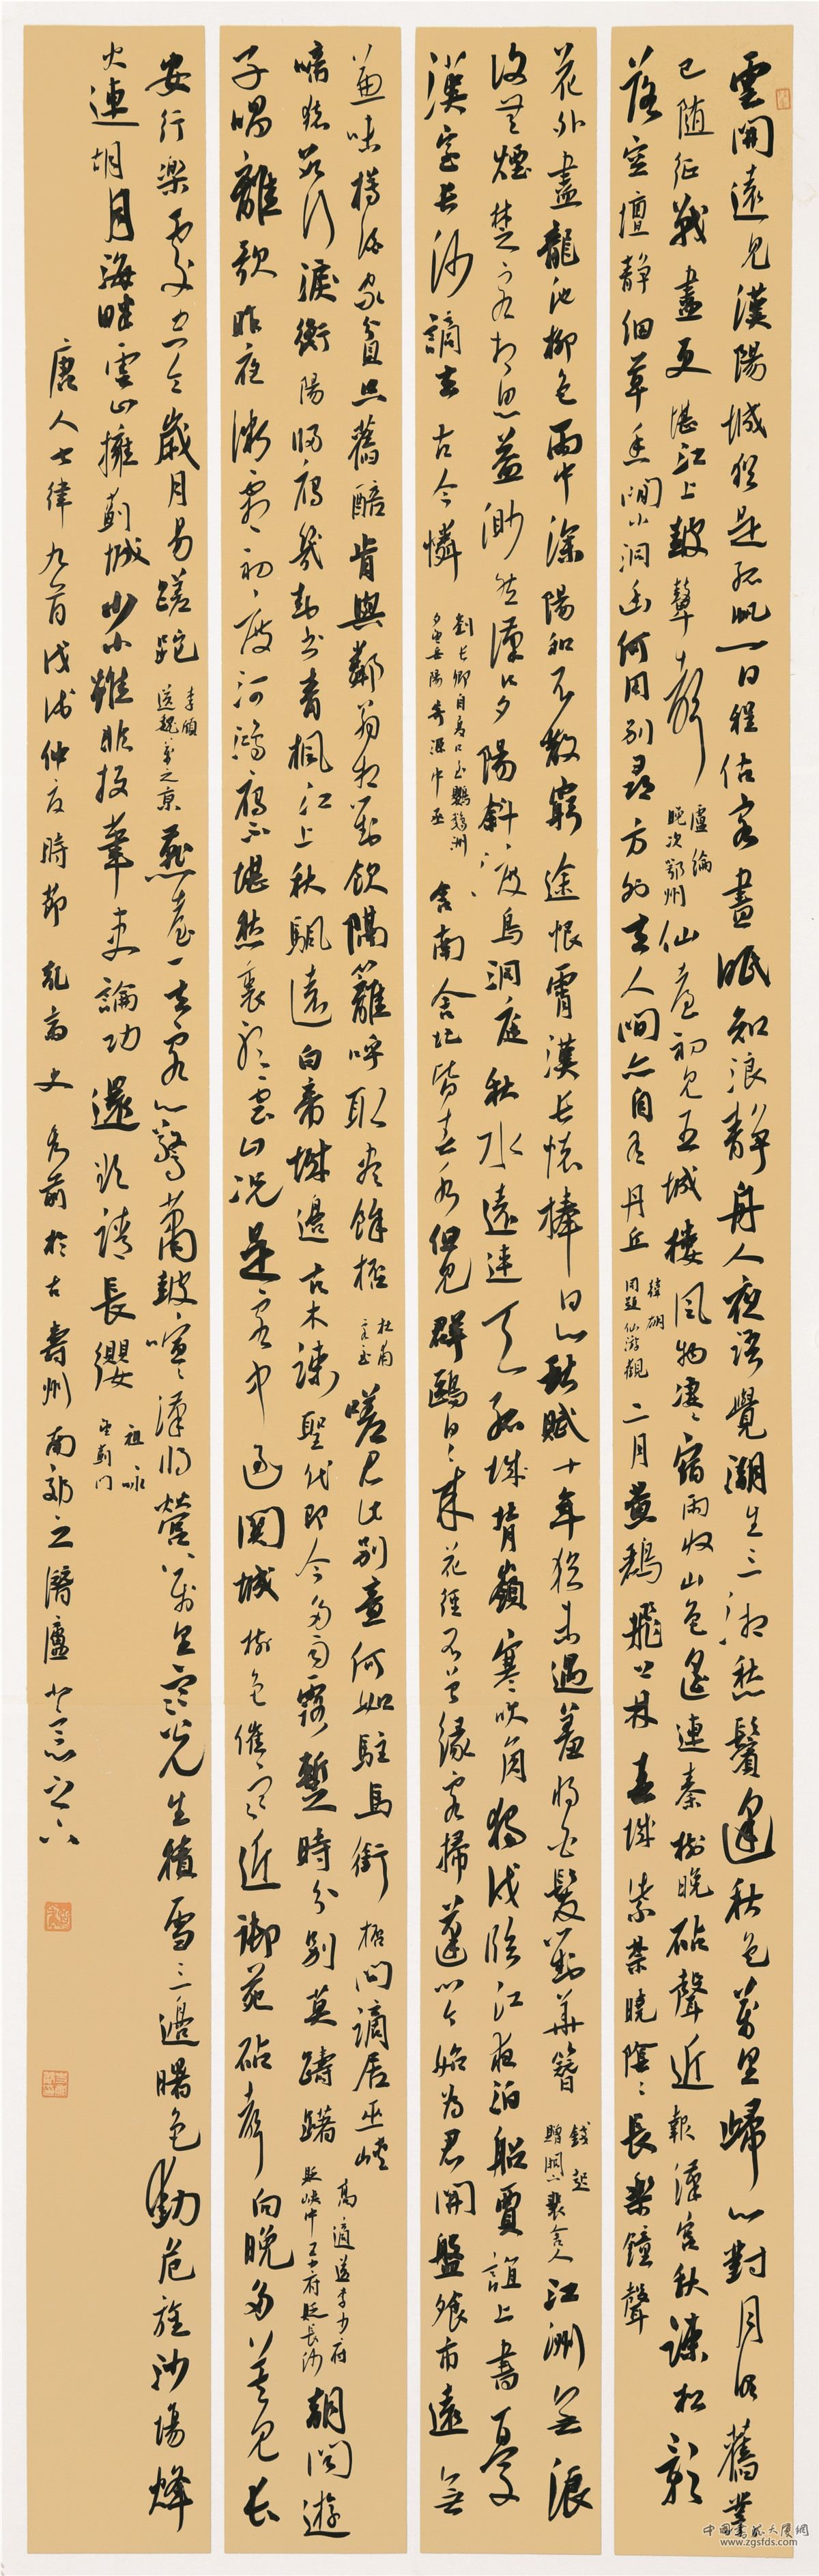 雲開遠見漢陽城猶是孤帆一日程估客晝眠知浪靜舟人夜語覺潮生三湘愁鬢逢秋色萬里歸心對月明舊業
已隨征戰盡更堪江上鼓鼙聲 盧綸晚次鄂州 仙臺初見五城樓風物淒淒宿雨收山色遙連秦樹晚砧聲近報漢宮秋疎松影
落空壇靜細草香閒小洞幽何用別尋方外去人間亦自有丹丘 韓翃同題仙游觀 二月黃鸝飛上林春城紫禁曉陰陰長樂鐘聲
花外盡龍池柳色雨中深陽和不散窮途恨霄漢長懷捧日心獻賦十年猶未遇羞將白髮對華簪 錢起贈闕下裴舍人 江洲無浪
復無煙楚客相思益渺然漢口夕陽斜渡鳥洞庭秋水遠連天孤城背嶺寒吹角獨戍臨江夜泊船賈誼上書憂
漢室長沙謫去古今憐 劉長卿自夏口至鸚鵡洲夕望岳陽寄源中丞 舍南舍北皆春水但見群鷗日日來花徑不曾緣客掃蓬門今始為君開盤飧市遠無
兼味樽酒家貧只舊醅肯與鄰翁相對飲隔籬呼取盡餘杯 杜甫客至 嗟君此別意何如駐馬銜杯問謫居巫峽
啼猿數行淚衡陽歸雁幾封書青楓江上秋帆遠白帝城邊古木疎聖代即今多雨露暫時分別莫躊躇 高適送李少府貶峽中王少府貶長沙 朝聞遊
子唱離歌昨夜微霜初度河鴻雁不堪愁裏聽雲山況是客中過關城樹色催寒近御苑砧聲向晚多莫見長
安行樂處空令歲月易蹉跎 李頎送魏萬之京 燕臺一去客心驚簫鼓喧喧漢將營萬里寒光生積雪三邊曙色動危旌沙場烽
火連胡月海畔雲山擁薊城少小雖非投筆吏論功還欲請長纓 祖詠望薊門
唐人七律九首戊戌仲夏時節 齋史秀前於古壽州南郊之廬
www.zgsfds.com